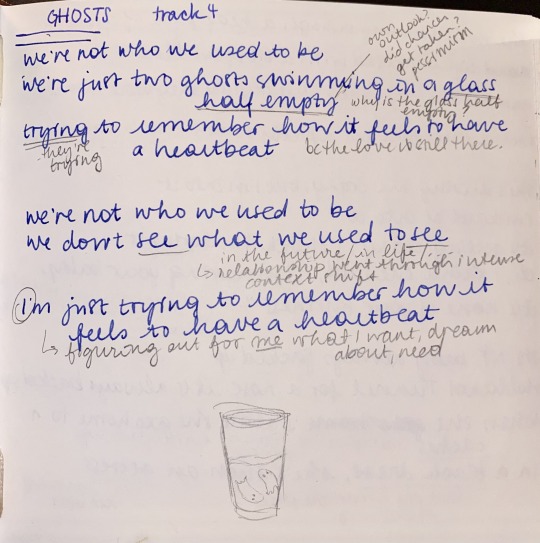 GHOSTS track 4
we're not who we used to be
own
outlook?
did chances
get taken?
pessimism
we're just two ghosts swimming in a glass
half empty why is the glass half
empty?
trying to remember how it feels to have
they're
trying
a heartbeat bc the love is still there.
we're not who we used to be
we don't see what we used to see
in the future/in life/
↳ relationship went through intense
context shift
I'm just trying to remember how it
feels to have a heartbeat
↳ figuring out for me what I want, dream
about, need